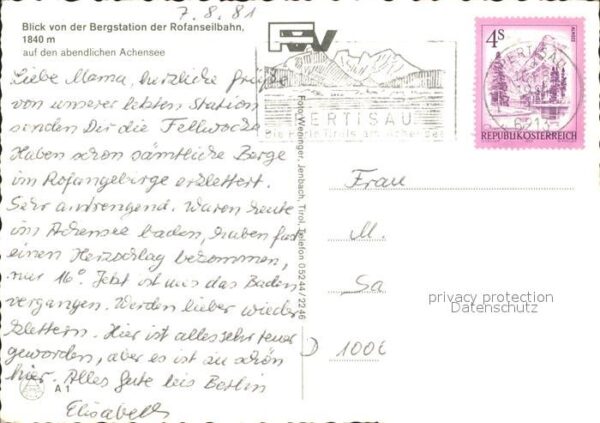 7.8.81
Blick von der Bergstation der Rofanseilbahn,
1840 m
auf den abendlichen Achensee
Liebe Mama, herzliche Grüße
von unserer letzten Station
senden Dir die
Haben schon sämtliche Berge
im Rofangebirge erklettert.
Sehr anstrengend. Waren heute
im Achensee baden, haben fast
einen Herzschlag bekommen,
nur 16°. Jetzt ist uns das Baden
vergangen. Werden lieber wieder
klettern. Hier ist alles sehr teuer
geworden, aber es ist so schön
hier. Alles Gute bis Berlin
Elisabeth
A 1
Foto: Weninger, Jenbach, Tirol, Telefon 05244/2246
PERTISAU
Die Perle Tirols am Achensee
4S
REPUBLIK ÖSTERREICH
PERTISAU
6213
Frau
M.
Sa
privacy protection
Datenschutz
D 100